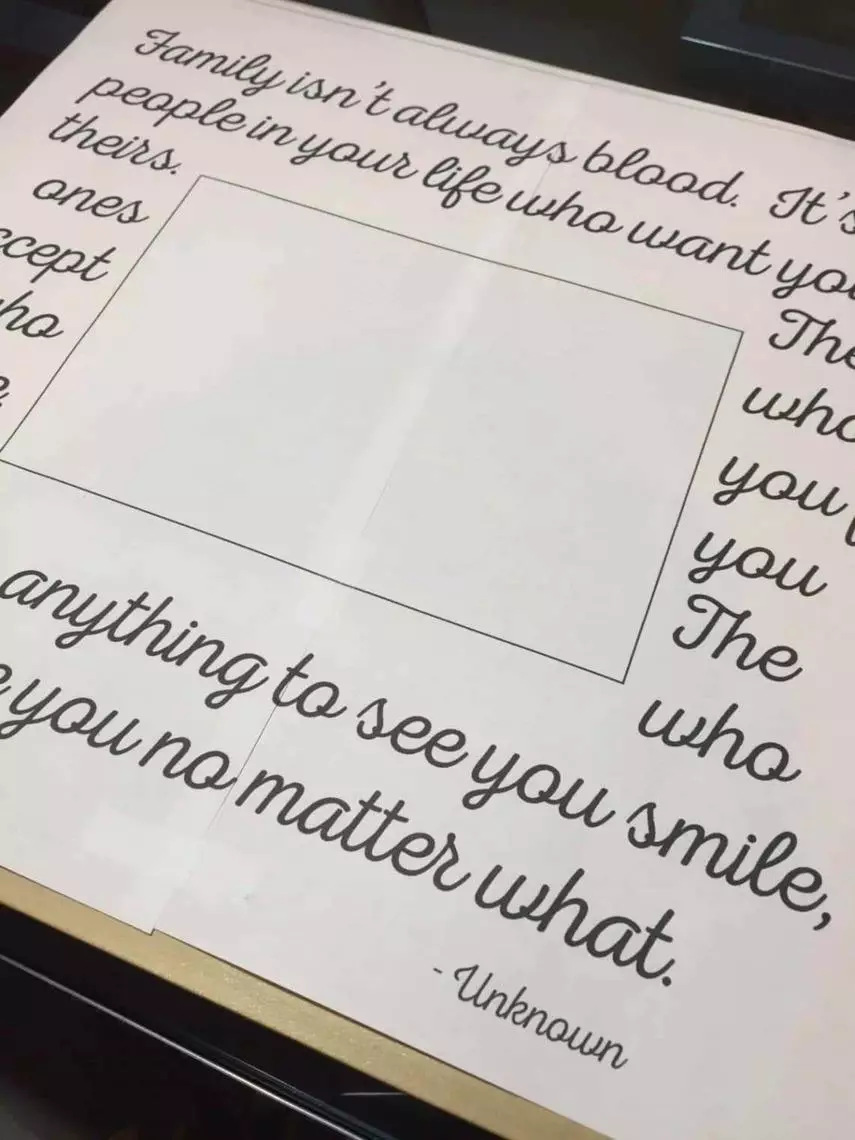 Family isn't always blood. It's
people in your life who want you
theirs. The
ones who
ccept you
ho you
The
who
anything to see you smile,
you no matter what.
- Unknown